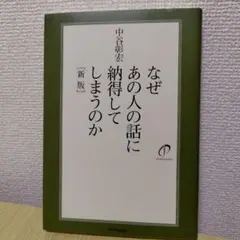 中谷彰宏
なぜ
あの人の話に
納得して
しまうのか
[新版]